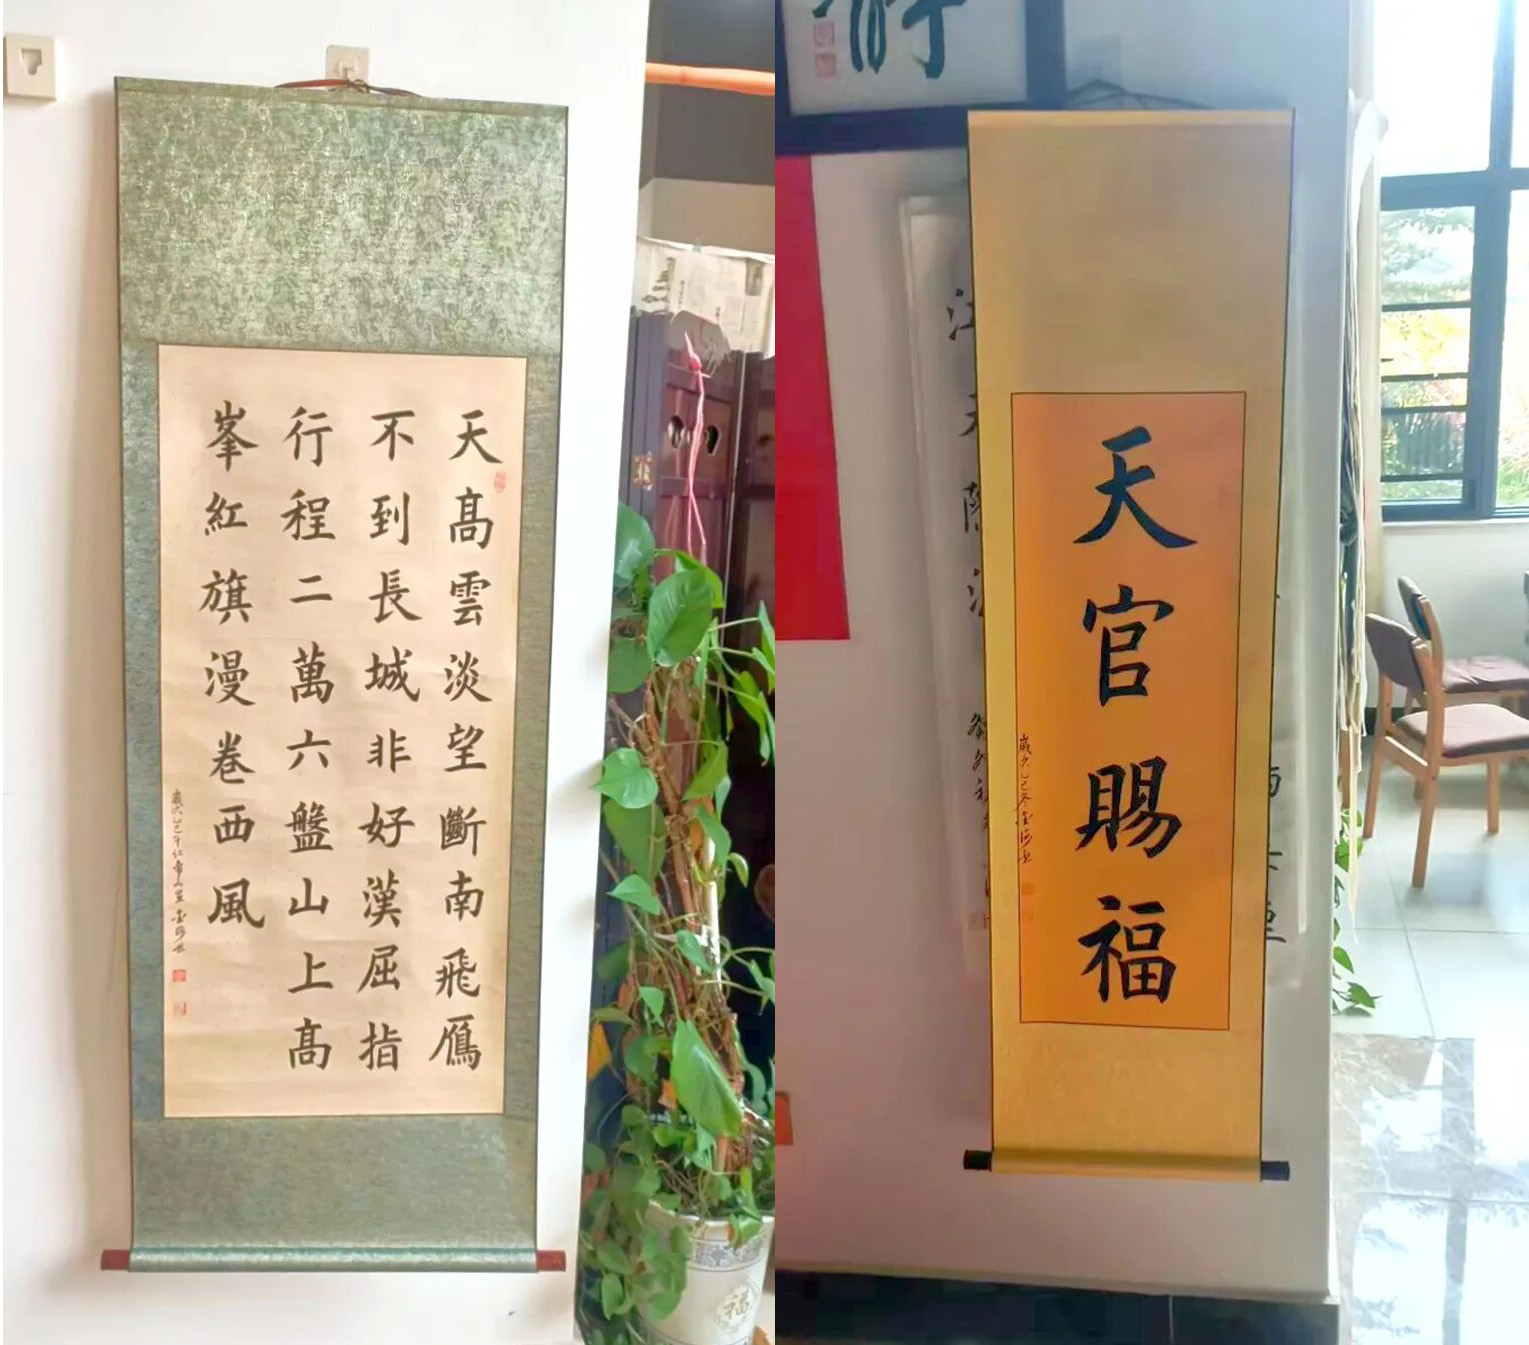 天高雲淡望斷南飛鴈
不到長城非好漢屈指
行程二萬六盤山上高
峯紅旗漫卷西風
歲次乙巳
福
天官賜福
歲次乙巳冬